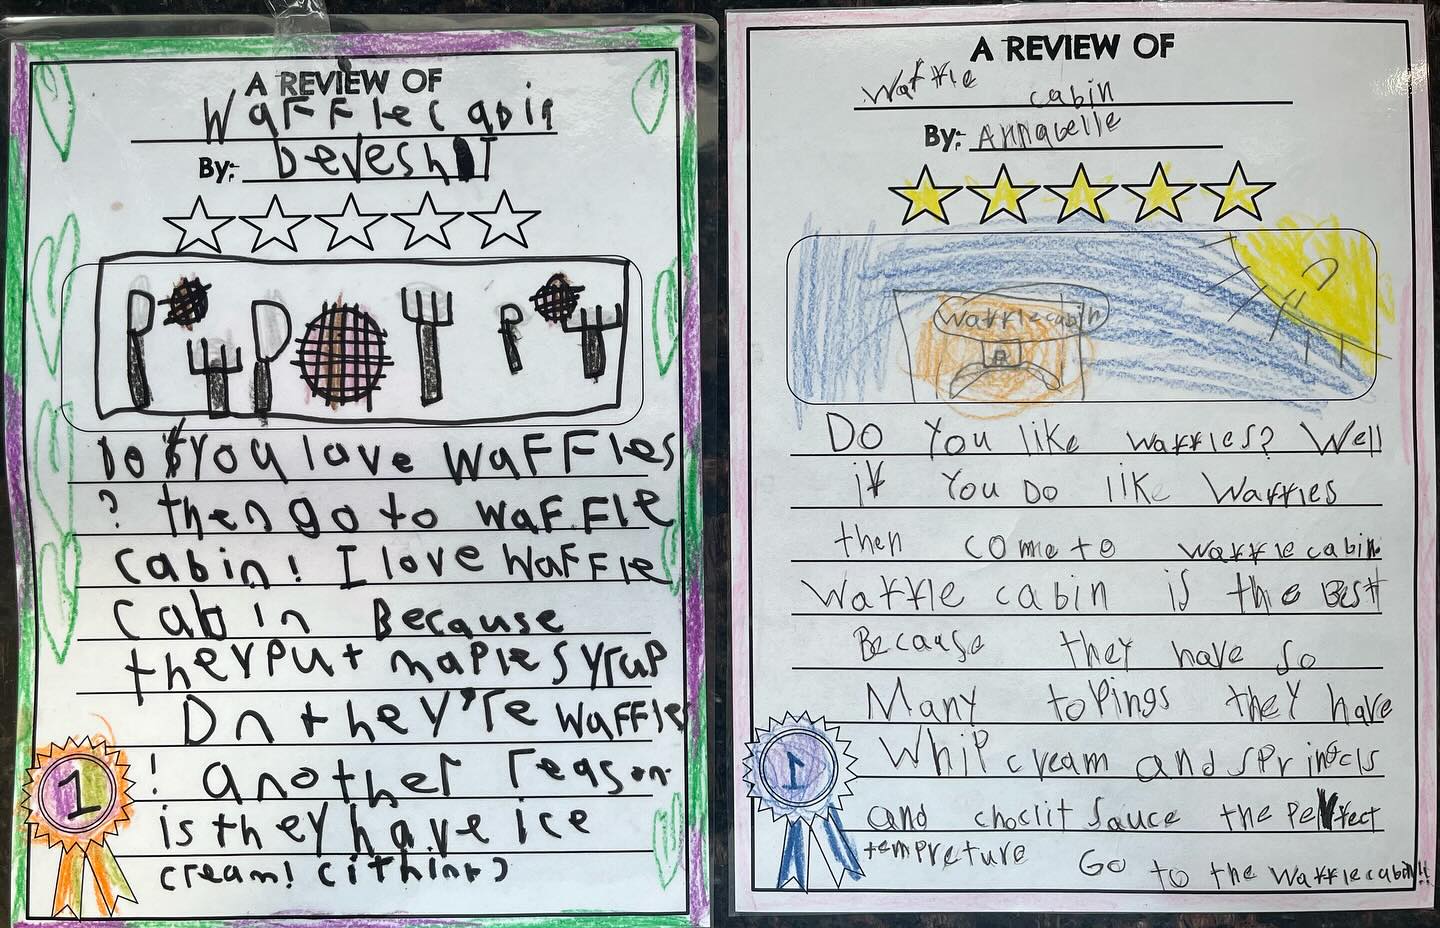 A REVIEW OF
Waffle cabin
By: Devesh T
Do you love waffles
? then go to waffle
cabin! I love waffle
cabin Because
they put maple syrup
Dn they're waffle
! another reason
is they have ice
cream! (ithink)
1
A REVIEW OF
Waffle cabin
By: Annabelle
Waffle cabin
Do You like waffles? Well
if You Do like Waffles
then come to waffle cabin
Waffle cabin is the BEst
Because they have so
Many toPings they have
Whip cream and sprincls
and choclit sauce the perfect
tempreture Go to the waffle cabin!!
1